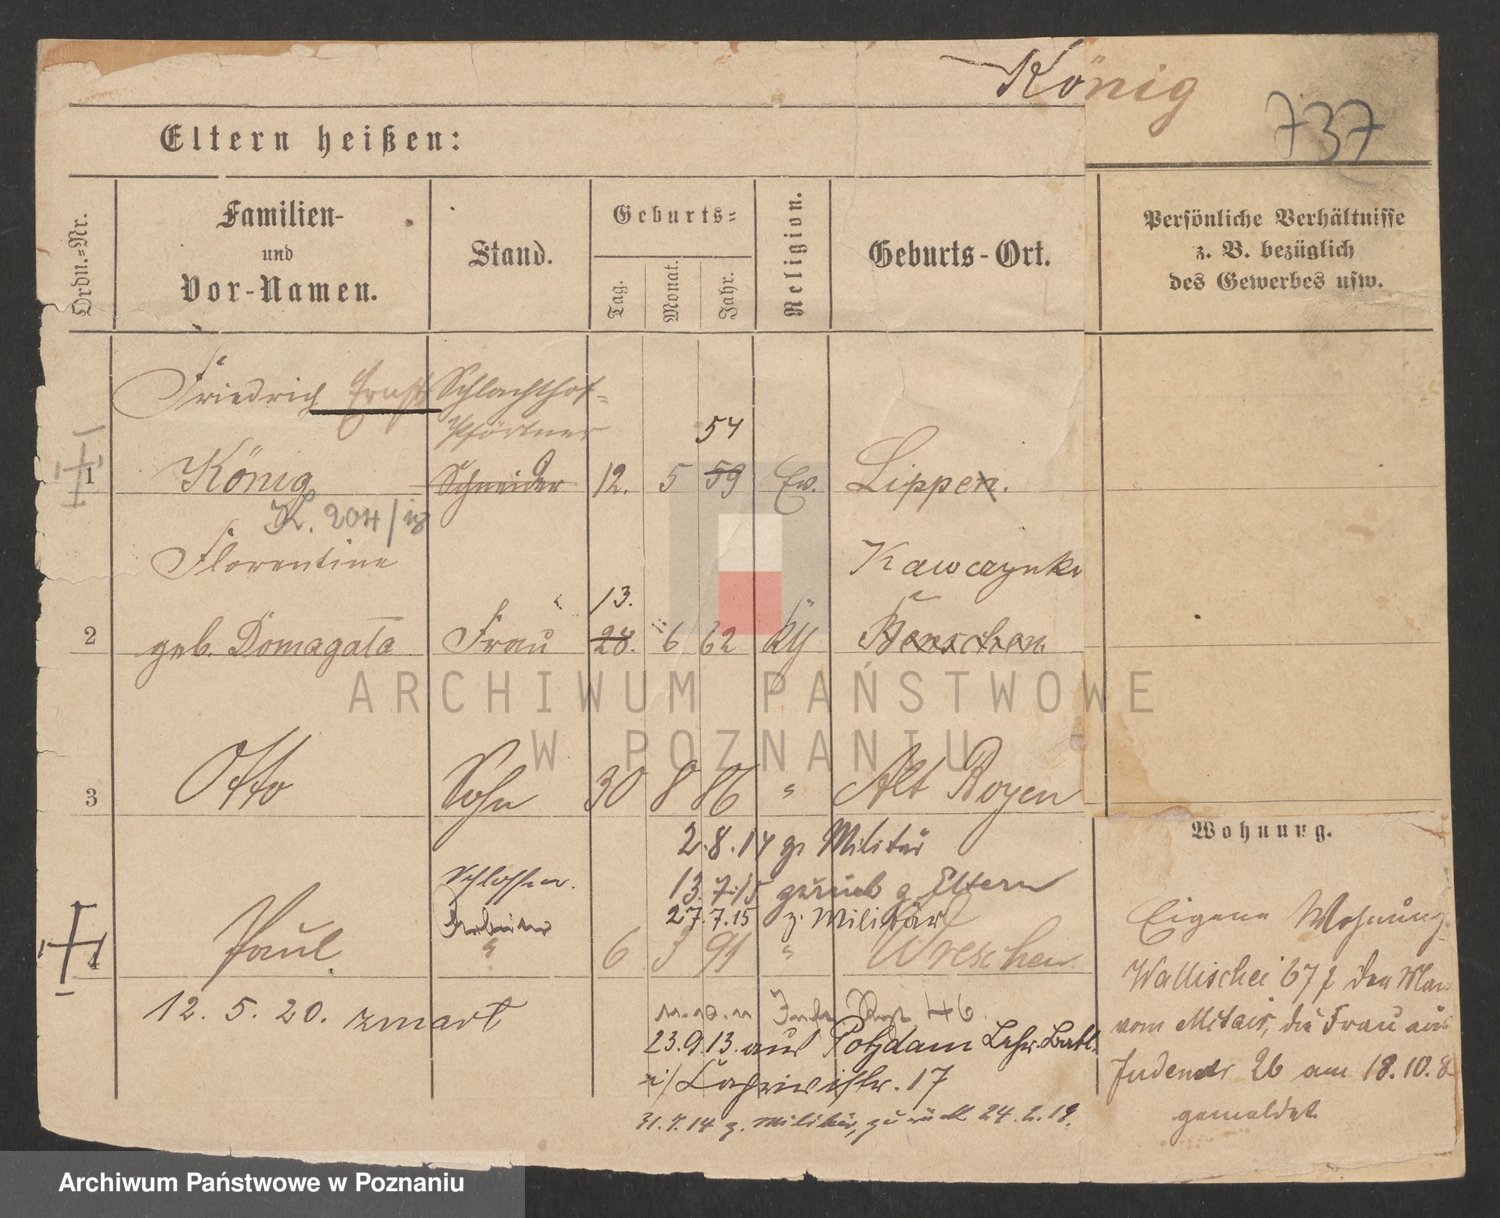 König
737
Eltern heißen:
Ordn.-Nr.
Familien-
und
Vor-Namen.
Stand.
Geburts-
Tag.
Monat.
Jahr.
Religion.
Geburts-Ort.
Persönliche Verhältnisse
z. B. bezüglich
des Gewerbes usw.
Friedrich Ernst Schlachthof-
Pförtner
54
1 König Schneider 12. 5 59 Ev. Lippen.
K. 204/
Florentine
13.
2 geb. Domagała Frau 28. 6 62 Benschen
ARCHIWUM PAŃSTWOWE
W POZNANIU
3 Otto Sohn 30 8 86 " Alt Boyen
2.8.14 z. Militär
Schlosser.
13.7.15 zurück z. Eltern
Arbeiter
27.7.15 z. Militär
4 Paul " 6 3 91 " Wreschen
12. 5. 20. zmarł
Inft. Regt 46.
23.9.13. aus Potzdam Lehr. Batl.
17
31.7.14 z. Militär, zurück 24.2.19.
Wohnung.
Eigene Wohnung.
Wallischei 67 der Man
vom Militair, die Frau aus
Judenstr 26 am 18.10.8
gemeldet
Archiwum Państwowe w Poznaniu